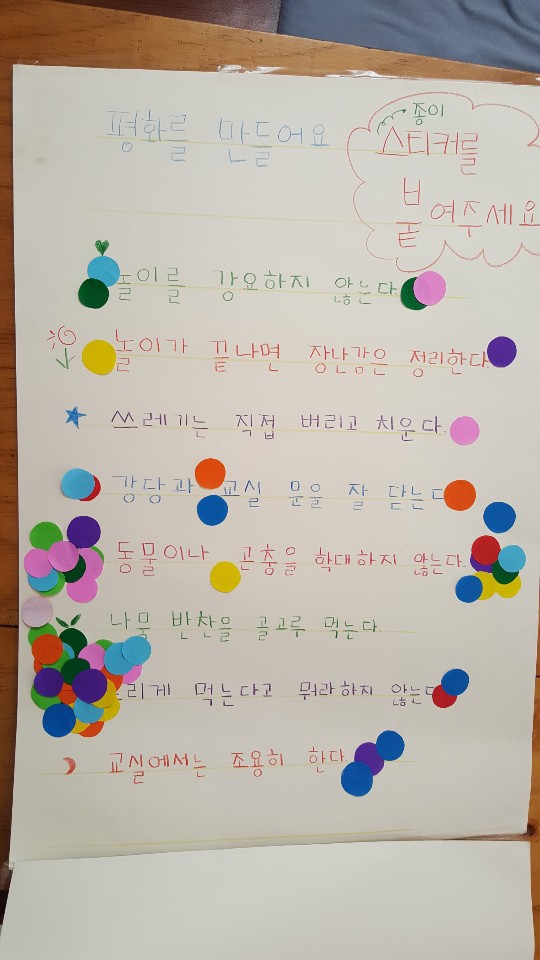 평화를 만들어요
종이
스티커를
붙여주세요
놀이를 강요하지 않는다
놀이가 끝나면 장난감은 정리한다.
쓰레기는 직접 버리고 치운다.
강당과 교실 문을 잘 닫는다
동물이나 곤충을 학대하지 않는다.
나물 반찬을 골고루 먹는다.
느리게 먹는다고 뭐라하지 않는다
교실에서는 조용히 한다.